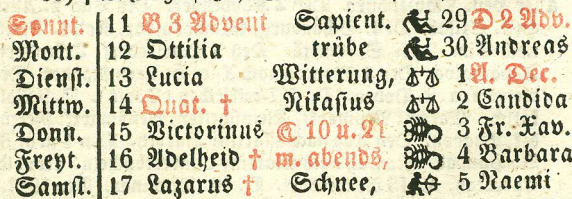 Sonnt. 11 B 3 Advent Sapient. 29 D 2 Adv.
Mont. 12 Ottilia trübe 30 Andreas
Dienst. 13 Lucia Witterung, 1 A. Dec.
Mittw. 14 Quat. † Nikasius 2 Candida
Donn. 15 Victorinus ☾ 10 u. 21 3 Fr. Xav.
Freyt. 16 Adelheid † m. abends, 4 Barbara
Samst. 17 Lazarus † Schnee, 5 Naemi